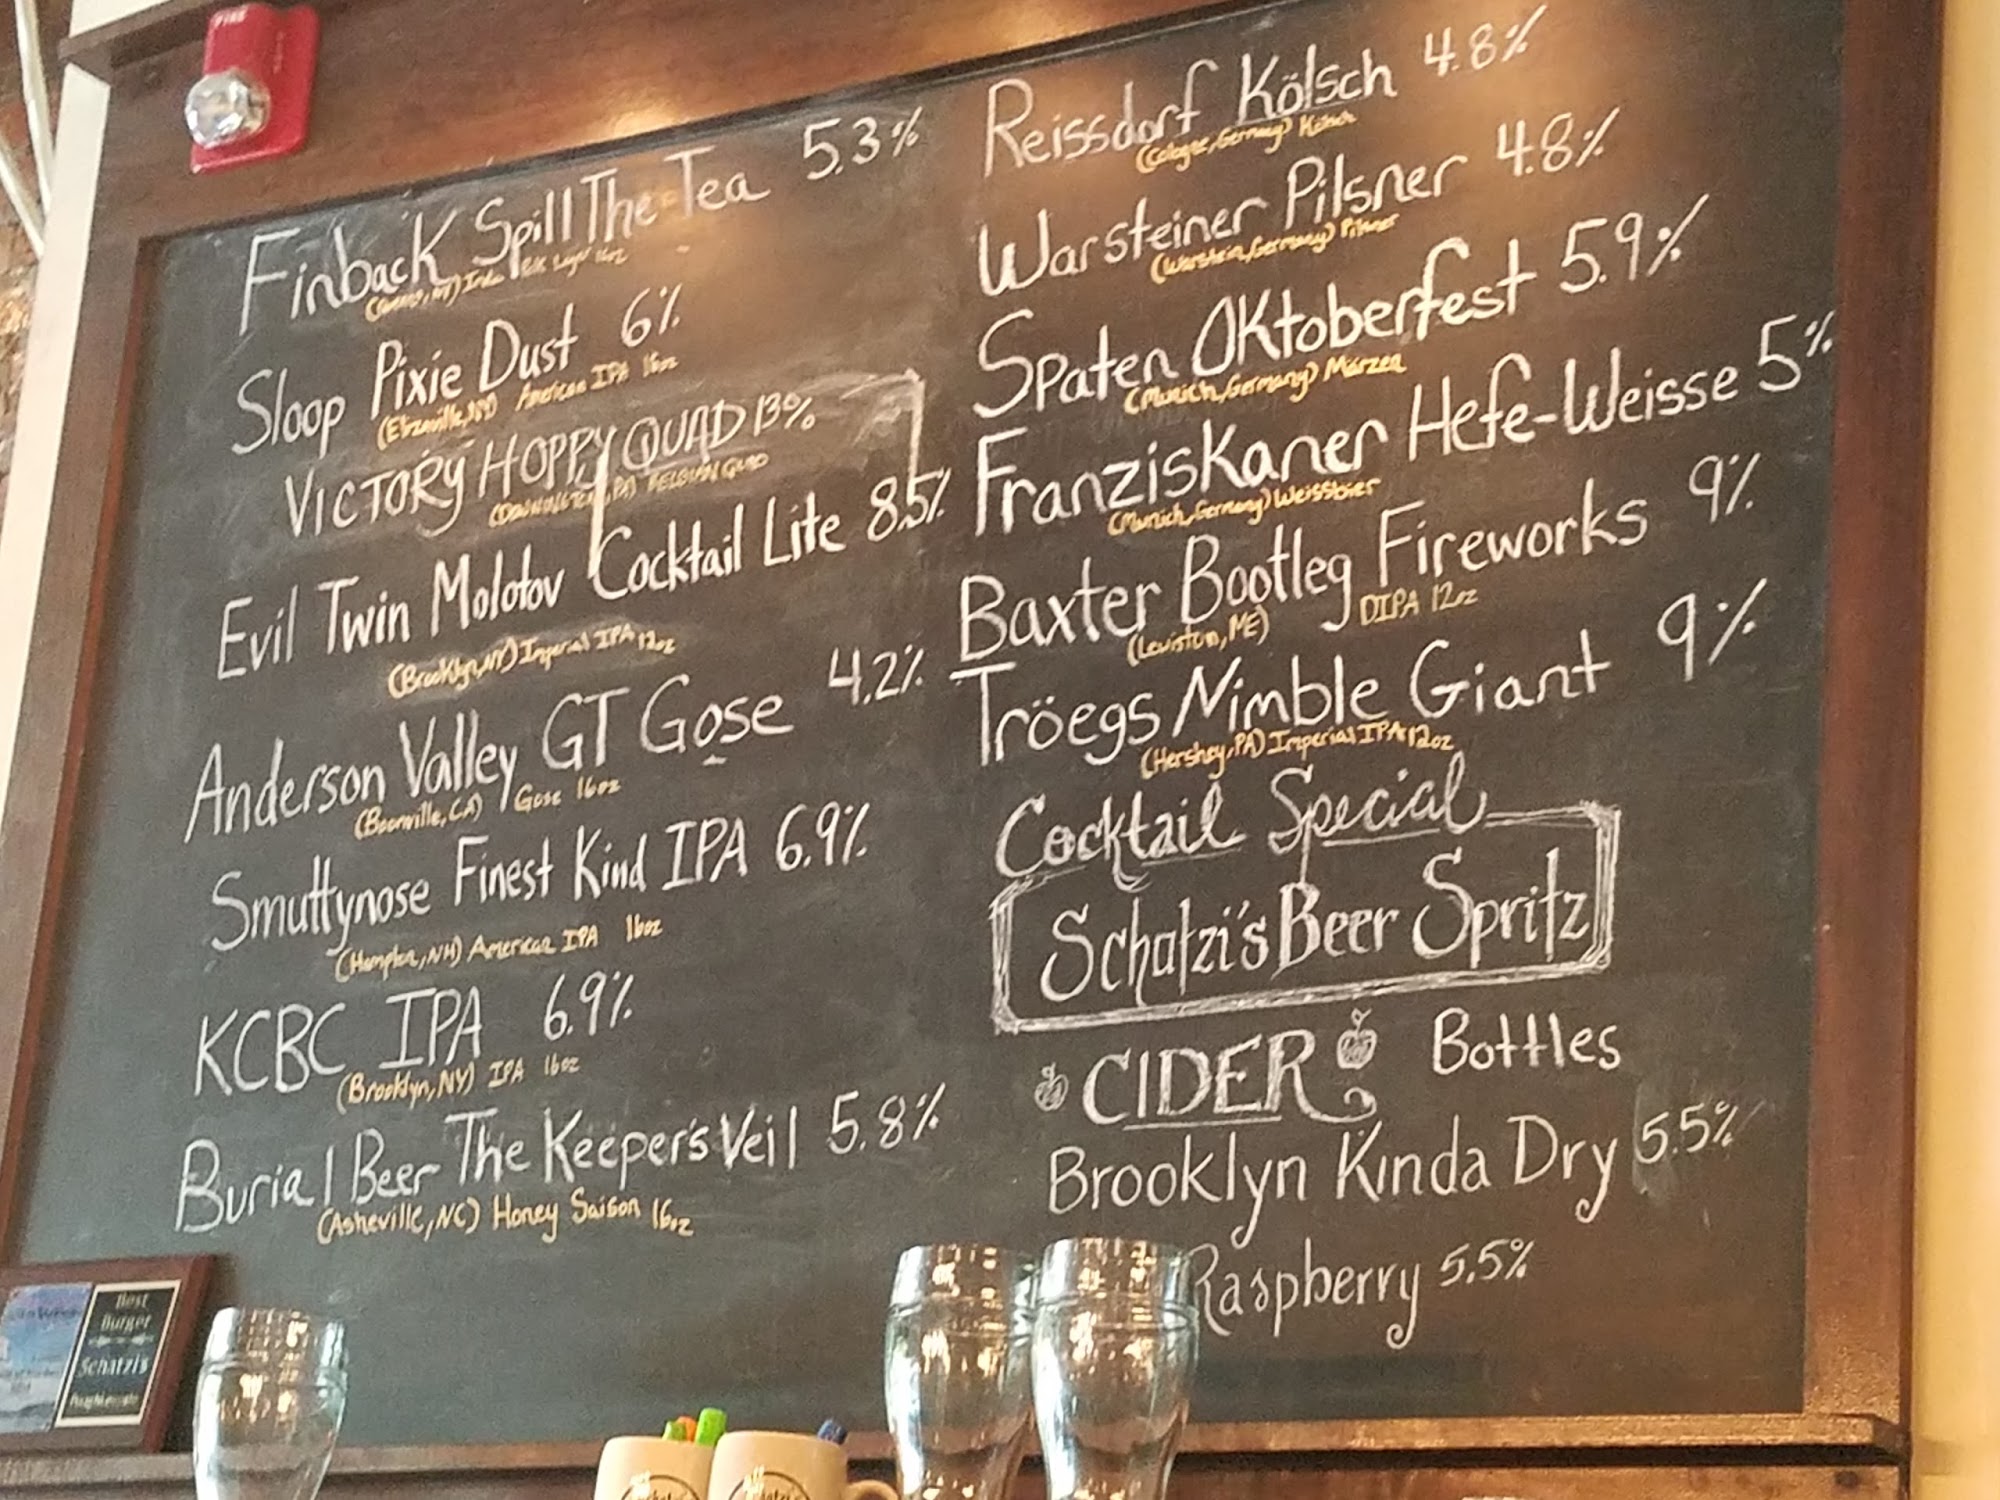 FIRE
Finback Spill The Tea 5.3%
16oz
Sloop Pixie Dust 6%
American IPA 16oz
VICTORY HOPPY QUAD 13%
(DOWNINGTOWN, PA) BELGIAN QUAD
Evil Twin Molotov Cocktail Lite 8.5%
(Brooklyn, NY) Imperial IPA 12oz
Anderson Valley GT Gose 4.2%
(Boonville, CA) Gose 16oz
Smuttynose Finest Kind IPA 6.9%
(Hampton, NH) American IPA 16oz
KCBC IPA 6.9%
(Brooklyn, NY) IPA 16oz
Burial Beer The Keeper's Veil 5.8%
(Asheville, NC) Honey Saison 16oz
Reissdorf Kölsch 4.8%
(Cologne, Germany) Kölsch
Warsteiner Pilsner 4.8%
(Warstein, Germany) Pilsner
Spaten Oktoberfest 5.9%
(Munich, Germany) Märzen
Franziskaner Hefe-Weisse 5%
(Munich, Germany) Weissbier
Baxter Bootleg Fireworks 9%
(Lewiston, ME) DIPA 12oz
Tröegs Nimble Giant 9%
(Hershey, PA) Imperial IPA 12oz
Cocktail Special
Schatzi's Beer Spritz
CIDER Bottles
Brooklyn Kinda Dry 5.5%
Raspberry 5.5%
Best
Burger
Schatzi's